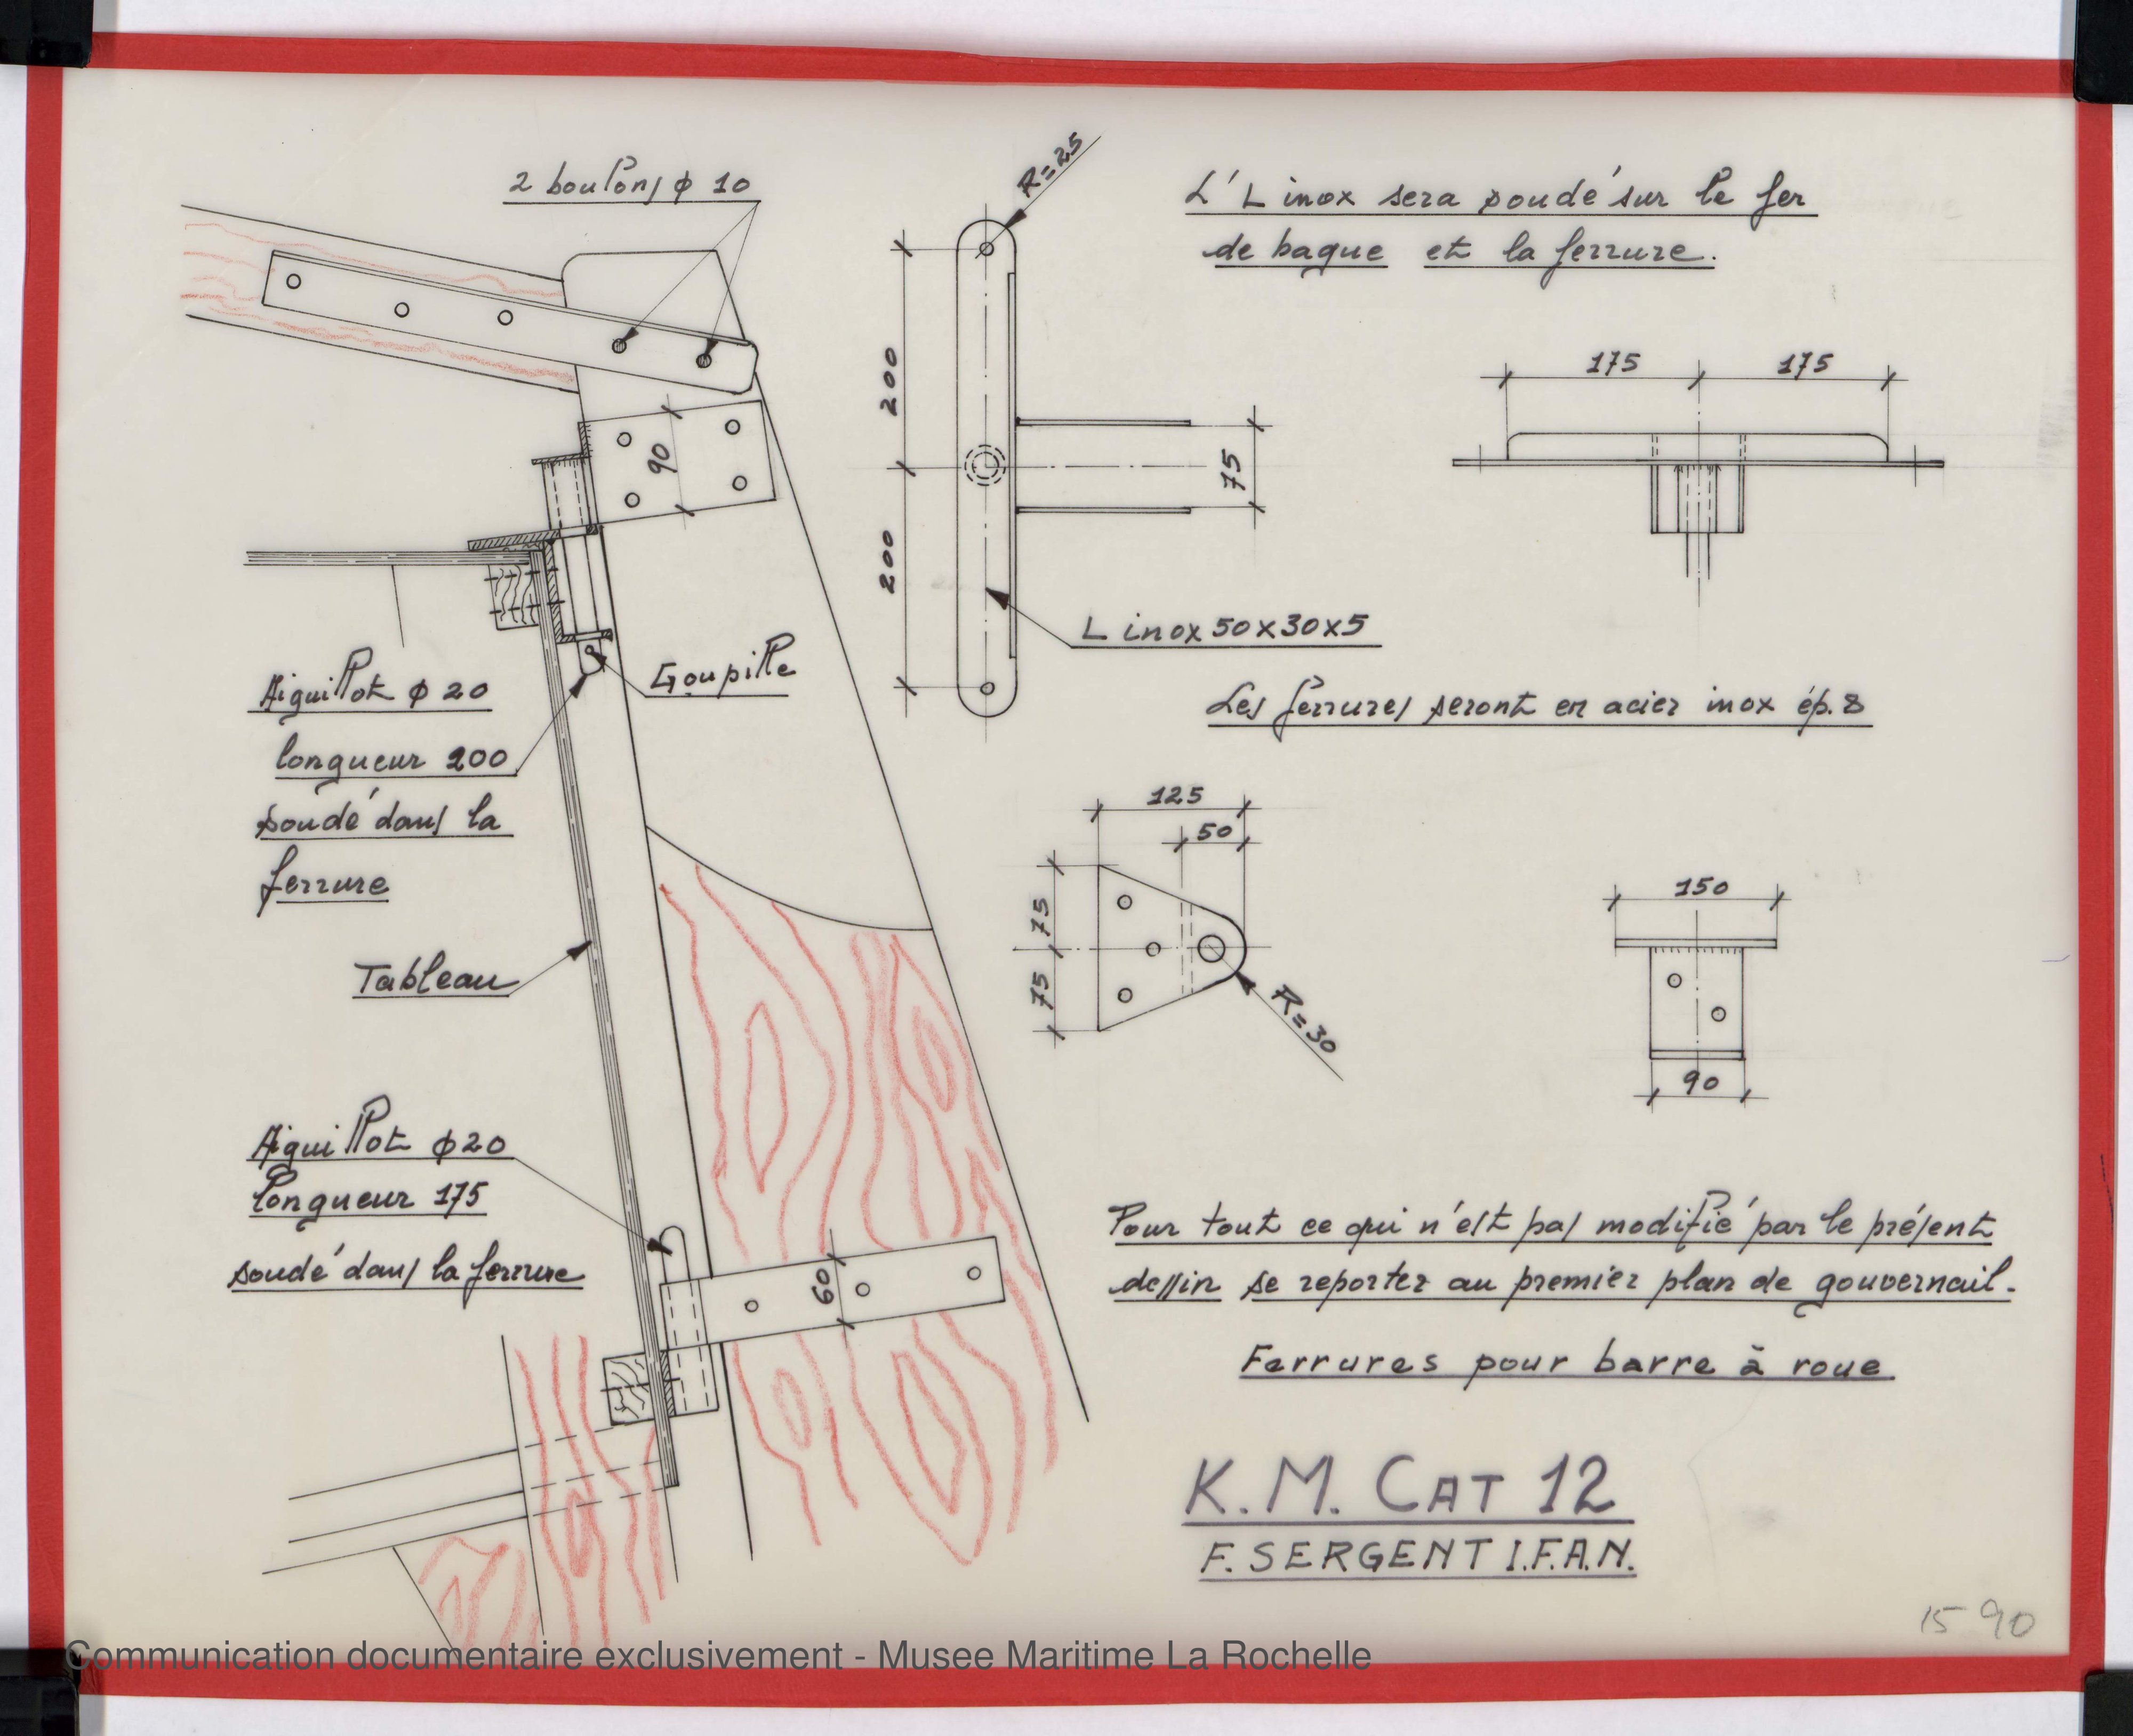 2 boulons ϕ 10
R=25
L' L inox sera soudé sur le fer
de bague et la ferrure.
200
200
90
75
175
175
L inox 50x30x5
Goupille
Aiguillot ϕ 20
longueur 200
soudé dans la
ferrure
Les ferrures seront en acier inox ép. 8
125
50
75
75
R=30
150
90
Tableau
Aiguillot ϕ20
longueur 175
soudé dans la ferrure
60
Pour tout ce qui n'est pas modifié par le présent
dessin se reporter au premier plan de gouvernail.
Ferrures pour barre à roue
K.M. CAT 12
F. SERGENT I.F.A.N.
15 90
Communication documentaire exclusivement - Musee Maritime La Rochelle